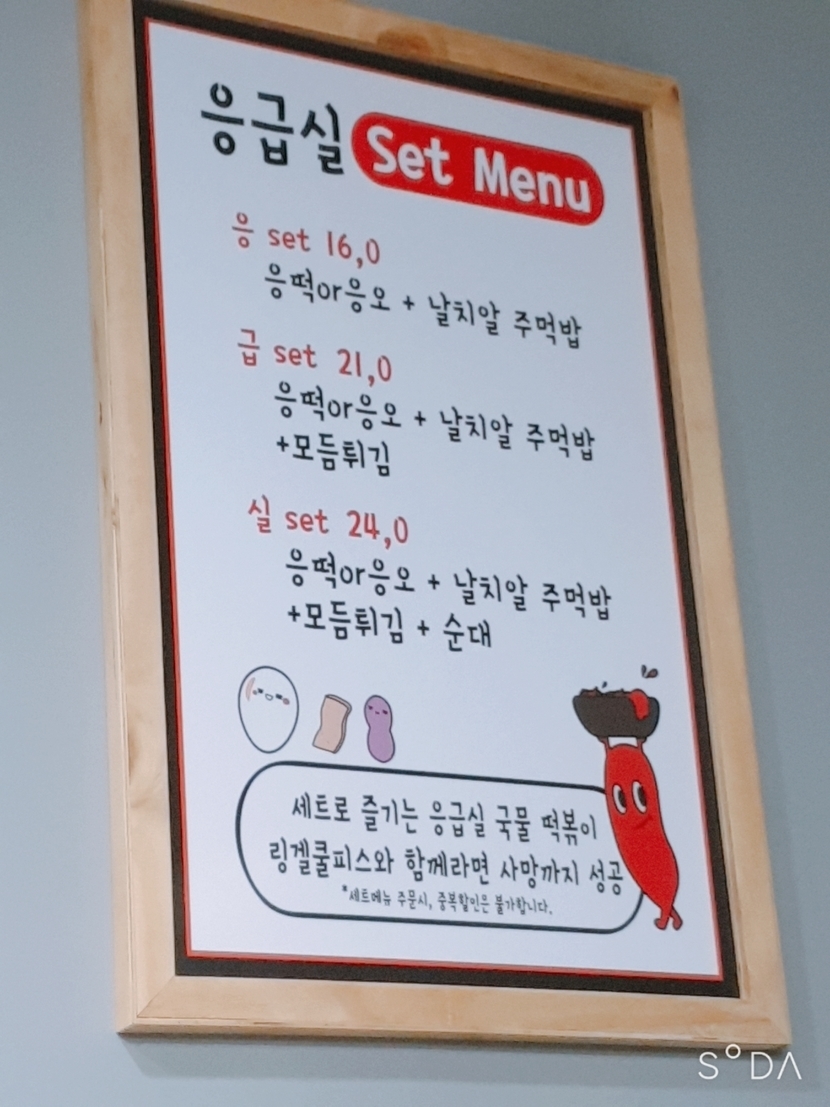 응급실 Set Menu
응 set 16,0
응떡or응오 + 날치알 주먹밥
급 set 21,0
응떡or응오 + 날치알 주먹밥
+모듬튀김
실 set 24,0
응떡or응오 + 날치알 주먹밥
+모듬튀김 + 순대
세트로 즐기는 응급실 국물 떡볶이
링겔쿨피스와 함께라면 사망까지 성공
*세트메뉴 주문시, 중복할인은 불가합니다.
SODA